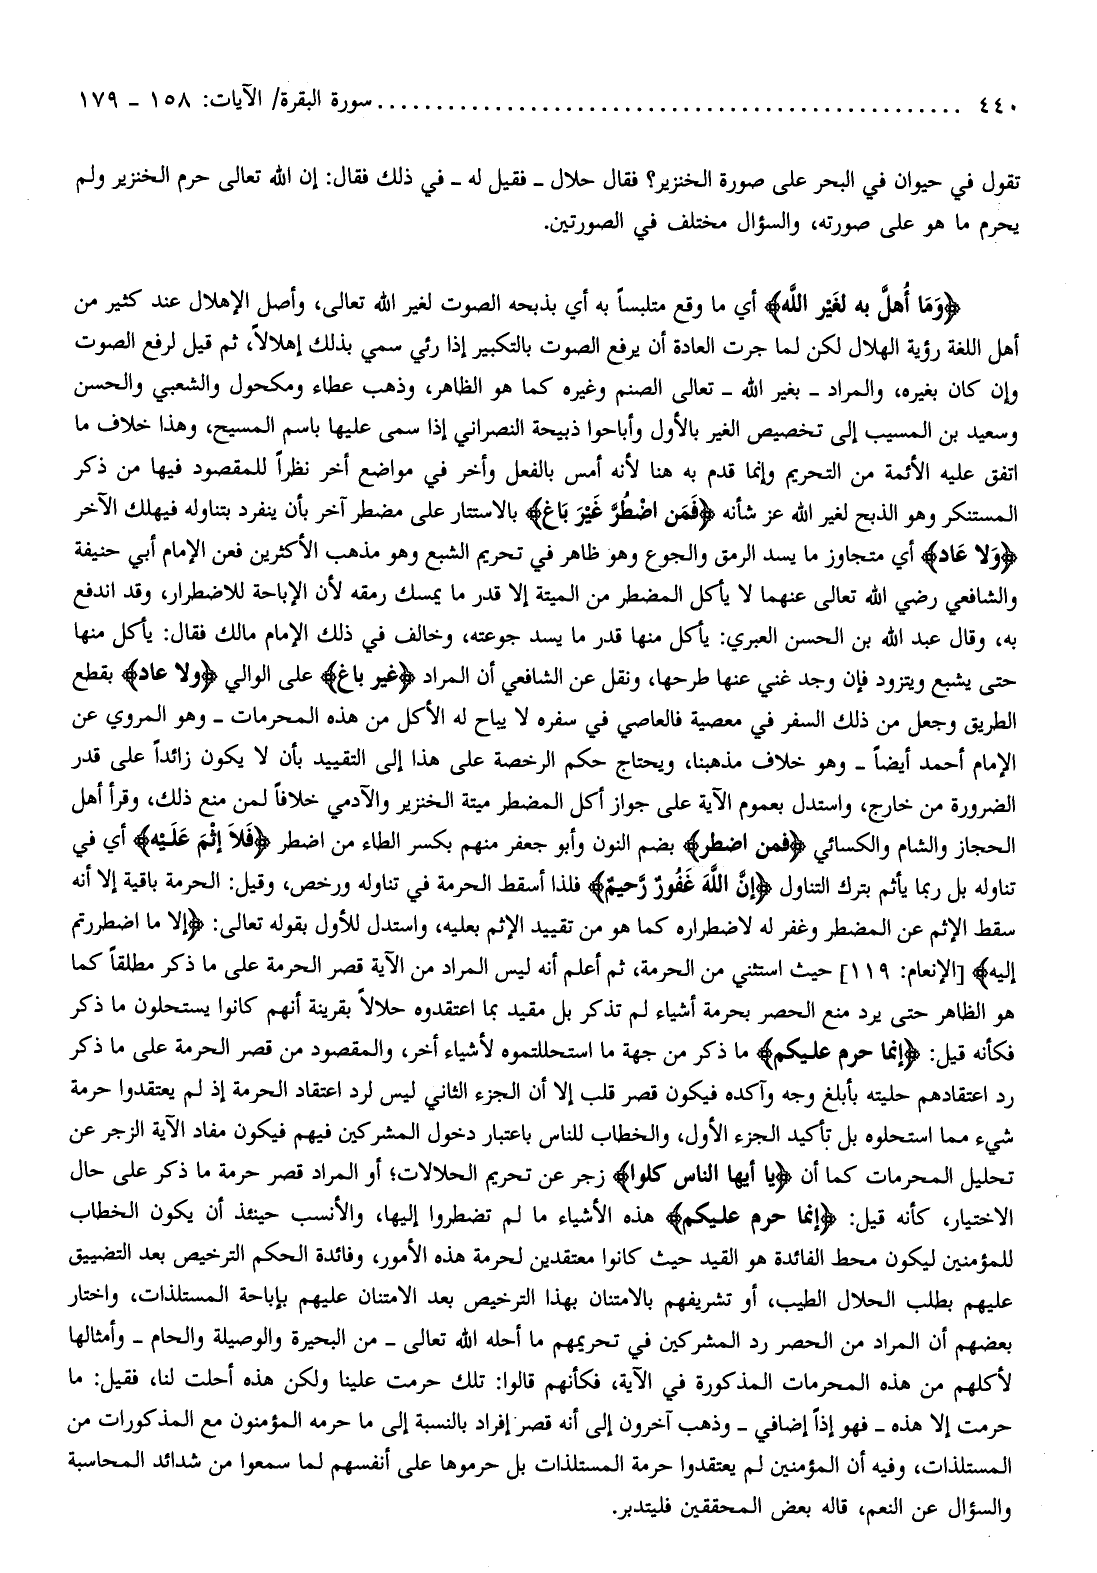 ٤٤٠ ........................................................ سورة البقرة/ الآيات: ١٥٨ ـ ١٧٩
تقول في حيوان في البحر على صورة الخنزير؟ فقال حلال ـ فقيل له ـ في ذلك فقال: إن الله تعالى حرم الخنزير ولم
يحرم ما هو على صورته، والسؤال مختلف في الصورتين.
﴿وَمَا أُهلَّ به لغَيْر اللَّه﴾ أي ما وقع متلبساً به أي بذبحه الصوت لغير الله تعالى، وأصل الإهلال عند كثير من
أهل اللغة رؤية الهلال لكن لما جرت العادة أن يرفع الصوت بالتكبير إذا رئي سمي بذلك إهلالاً، ثم قيل لرفع الصوت
وإن كان بغيره، والمراد ـ بغير الله ـ تعالى الصنم وغيره كما هو الظاهر، وذهب عطاء ومكحول والشعبي والحسن
وسعيد بن المسيب إلى تخصيص الغير بالأول وأباحوا ذبيحة النصراني إذا سمى عليها باسم المسيح، وهذا خلاف ما
اتفق عليه الأئمة من التحريم وإنما قدم به هنا لأنه أمس بالفعل وأخر في مواضع أخر نظراً للمقصود فيها من ذكر
المستنكر وهو الذبح لغير الله عز شأنه ﴿فَمَن اضْطُرَّ غَيْرَ بَاغ﴾ بالاستتار على مضطر آخر بأن ينفرد بتناوله فيهلك الآخر
﴿وَلا عَاد﴾ أي متجاوز ما يسد الرمق والجوع وهو ظاهر في تحريم الشبع وهو مذهب الأكثرين فعن الإمام أبي حنيفة
والشافعي رضي الله تعالى عنهما لا يأكل المضطر من الميتة إلا قدر ما يمسك رمقه لأن الإباحة للاضطرار، وقد اندفع
به، وقال عبد الله بن الحسن العبري: يأكل منها قدر ما يسد جوعته، وخالف في ذلك الإمام مالك فقال: يأكل منها
حتى يشبع ويتزود فإن وجد غنى عنها طرحها، ونقل عن الشافعي أن المراد ﴿غير باغ﴾ على الوالي ﴿ولا عاد﴾ بقطع
الطريق وجعل من ذلك السفر في معصية فالعاصي في سفره لا يباح له الأكل من هذه المحرمات ـ وهو المروي عن
الإمام أحمد أيضاً ـ وهو خلاف مذهبنا، ويحتاج حكم الرخصة على هذا إلى التقييد بأن لا يكون زائداً على قدر
الضرورة من خارج، واستدل بعموم الآية على جواز أكل المضطر ميتة الخنزير والآدمي خلافاً لمن منع ذلك، وقرأ أهل
الحجاز والشام والكسائي ﴿فمن اضطر﴾ بضم النون وأبو جعفر منهم بكسر الطاء من اضطر ﴿فَلاَ إثْمَ عَلَيْه﴾ أي في
تناوله بل ربما يأثم بترك التناول ﴿إنَّ اللَّهَ غَفُورٌ رَّحيمٌ﴾ فلذا أسقط الحرمة في تناوله ورخص، وقيل: الحرمة باقية إلا أنه
سقط الإثم عن المضطر وغفر له لاضطراره كما هو من تقييد الإثم بعليه، واستدل للأول بقوله تعالى: ﴿إلا ما اضطررتم
إليه﴾ [الإنعام: ١١٩] حيث استثني من الحرمة، ثم أعلم أنه ليس المراد من الآية قصر الحرمة على ما ذكر مطلقاً كما
هو الظاهر حتى يرد منع الحصر بحرمة أشياء لم تذكر بل مقيد بما اعتقدوه حلالاً بقرينة أنهم كانوا يستحلون ما ذكر
فكأنه قيل: ﴿إنما حرم عليكم﴾ ما ذكر من جهة ما استحللتموه لأشياء أخر، والمقصود من قصر الحرمة على ما ذكر
رد اعتقادهم حليته بأبلغ وجه وآكده فيكون قصر قلب إلا أن الجزء الثاني ليس لرد اعتقاد الحرمة إذ لم يعتقدوا حرمة
شيء مما استحلوه بل تأكيد الجزء الأول، والخطاب للناس باعتبار دخول المشركين فيهم فيكون مفاد الآية الزجر عن
تحليل المحرمات كما أن ﴿يا أيها الناس كلوا﴾ زجر عن تحريم الحلالات؛ أو المراد قصر حرمة ما ذكر على حال
الاختيار، كأنه قيل: ﴿إنما حرم عليكم﴾ هذه الأشياء ما لم تضطروا إليها، والأنسب حينئذ أن يكون الخطاب
للمؤمنين ليكون محط الفائدة هو القيد حيث كانوا معتقدين لحرمة هذه الأمور، وفائدة الحكم الترخيص بعد التضييق
عليهم بطلب الحلال الطيب، أو تشريفهم بالامتنان بهذا الترخيص بعد الامتنان عليهم بإباحة المستلذات، واختار
بعضهم أن المراد من الحصر رد المشركين في تحريمهم ما أحله الله تعالى ـ من البحيرة والوصيلة والحام ـ وأمثالها
لأكلهم من هذه المحرمات المذكورة في الآية، فكأنهم قالوا: تلك حرمت علينا ولكن هذه أحلت لنا، فقيل: ما
حرمت إلا هذه ـ فهو إذاً إضافي ـ وذهب آخرون إلى أنه قصر إفراد بالنسبة إلى ما حرمه المؤمنون مع المذكورات من
المستلذات، وفيه أن المؤمنين لم يعتقدوا حرمة المستلذات بل حرموها على أنفسهم لما سمعوا من شدائد المحاسبة
والسؤال عن النعم، قاله بعض المحققين فليتدبر.